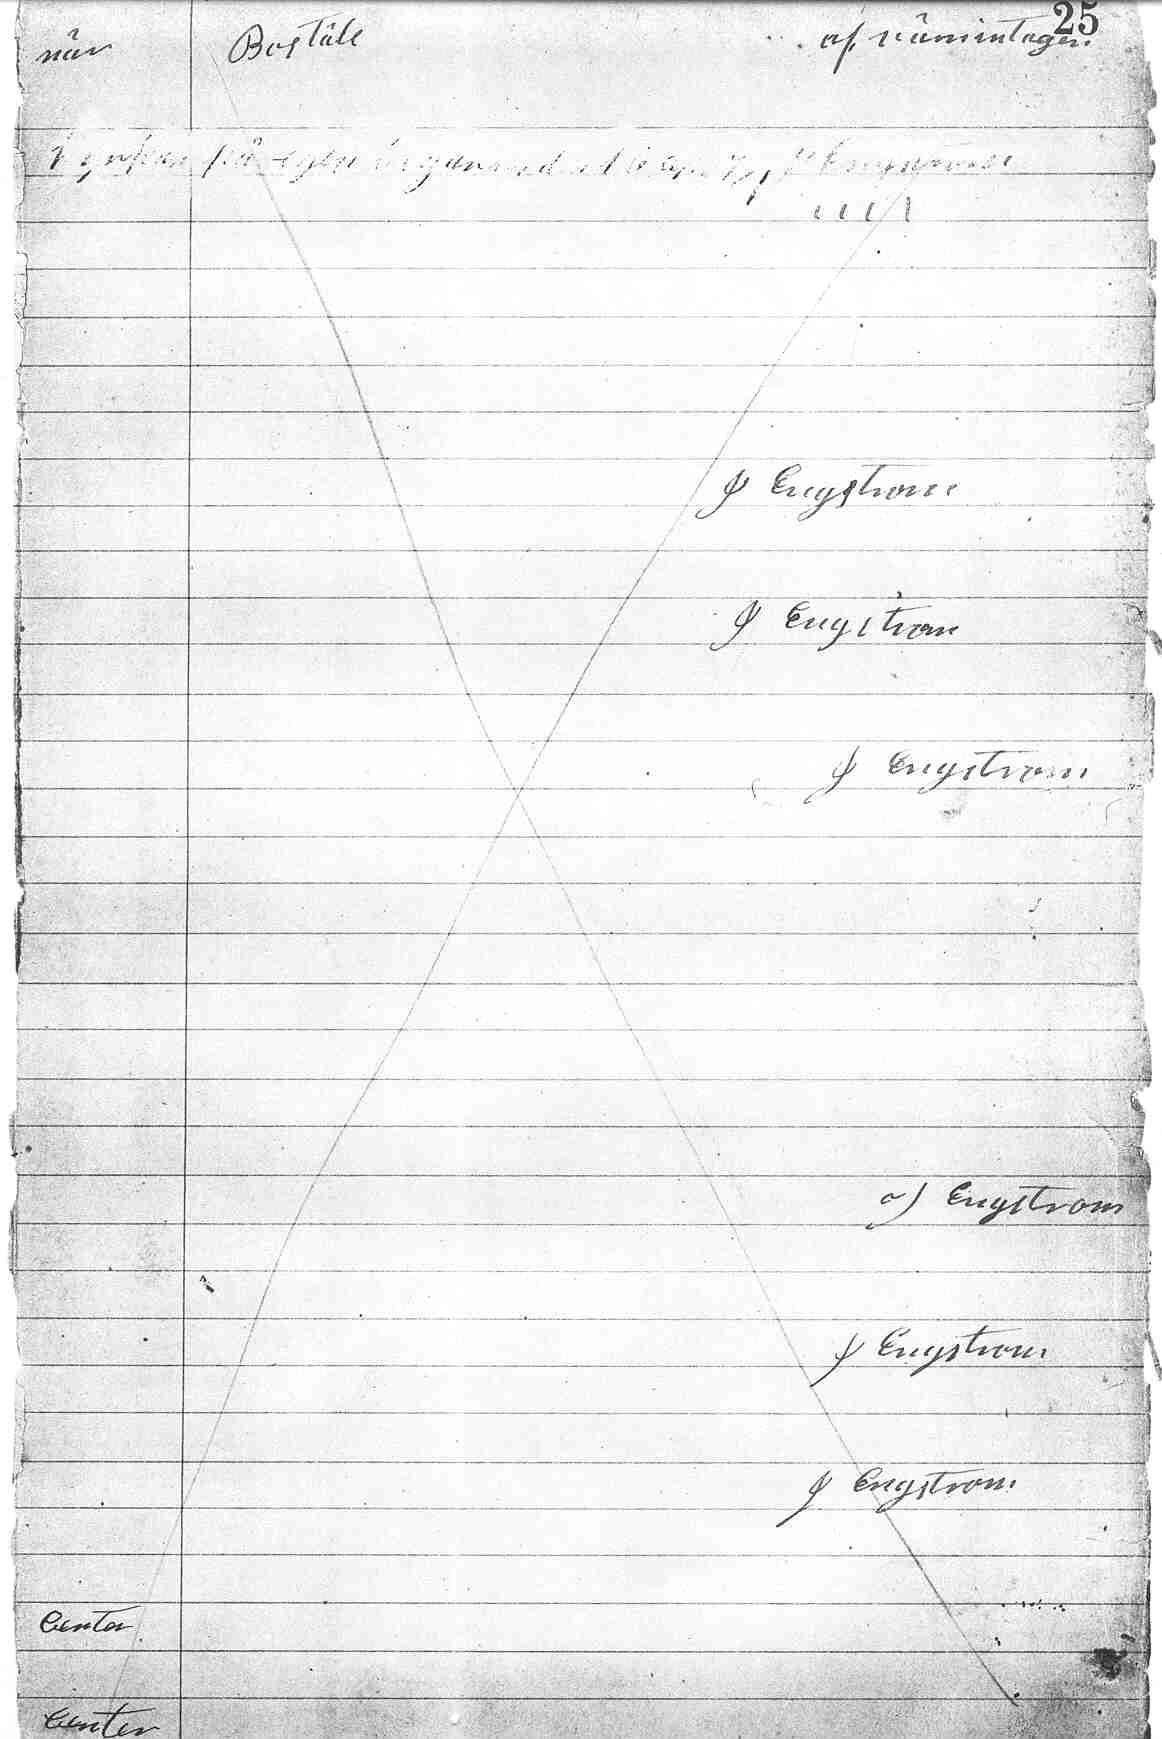 25
när Bostäle af nämintagen
på egen Engstrom
J Engstrom
J Engstrom
J Engstrom
J Engstrom
J Engstrom
J Engstrom
Center
Center